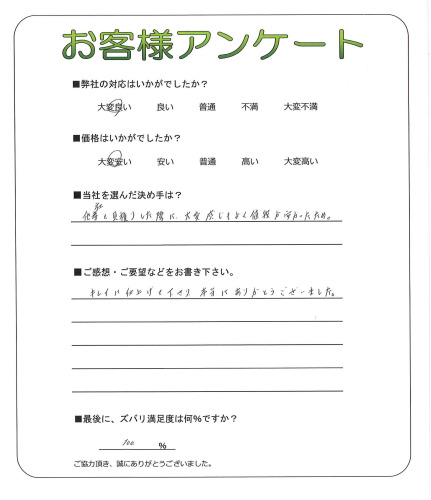 お客様アンケート
■弊社の対応はいかがでしたか?
大変良い 良い 普通 不満 大変不満
■価格はいかがでしたか?
大変安い 安い 普通 高い 大変高い
■当社を選んだ決め手は?
他社と見積りした際に、大変感じもよく値段が安かったため。
■ご感想・ご要望などをお書き下さい。
キレイに仕上げて下さり 本当にありがとうございました。
■最後に、ズバリ満足度は何%ですか?
100 %
ご協力頂き、誠にありがとうございました。